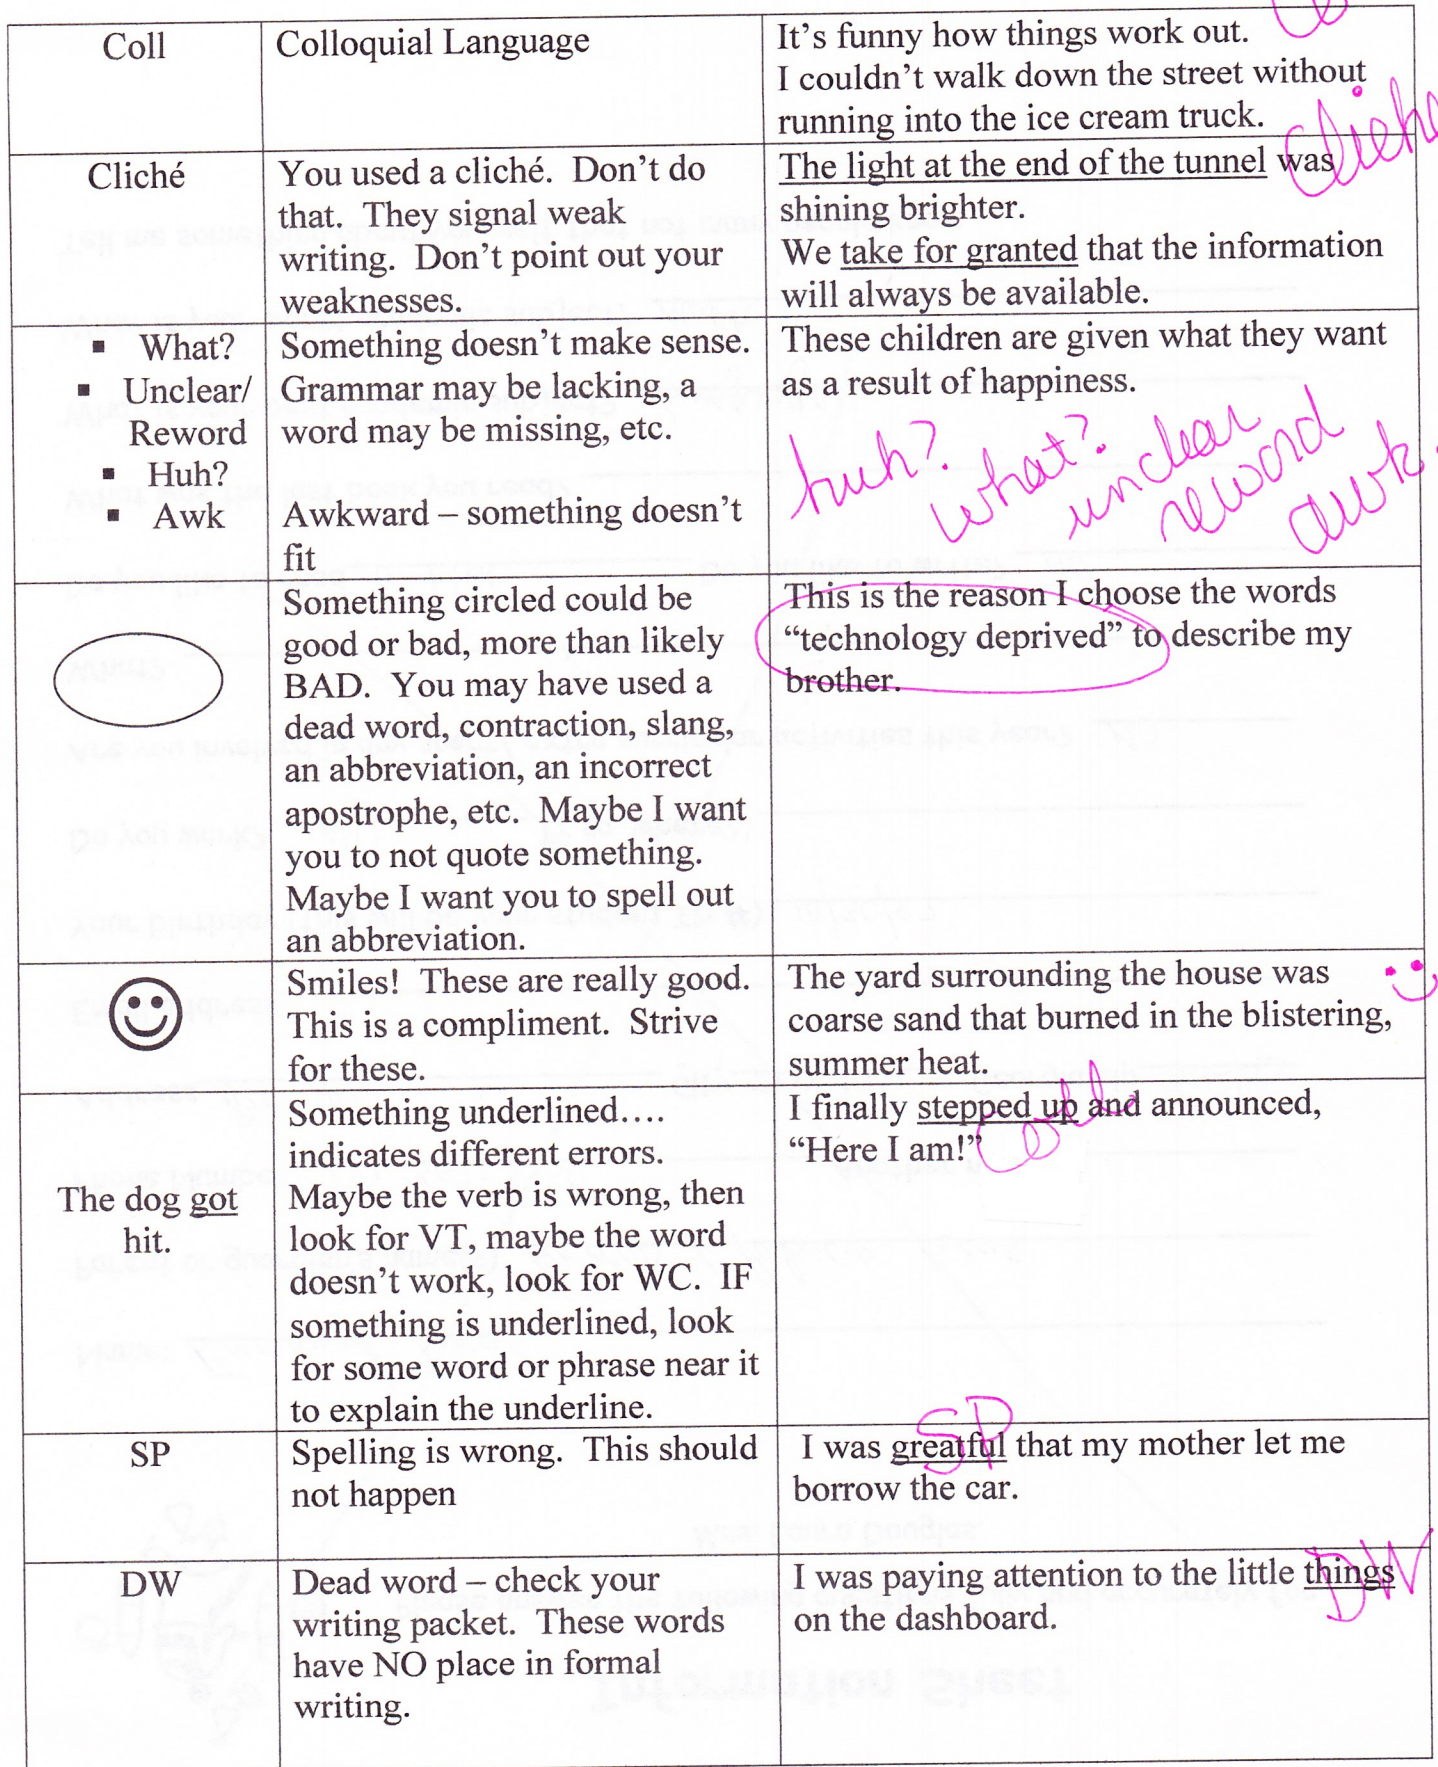 Coll
Colloquial Language
It's funny how things work out.
I couldn't walk down the street without
running into the ice cream truck.
Cliché
You used a cliché. Don't do
that. They signal weak
writing. Don't point out your
weaknesses.
The light at the end of the tunnel was
shining brighter.
We take for granted that the information
will always be available.
Cliche
▪ What?
▪ Unclear/
Reword
▪ Huh?
▪ Awk
Something doesn't make sense.
Grammar may be lacking, a
word may be missing, etc.
Awkward – something doesn't
fit
These children are given what they want
as a result of happiness.
huh?
what?
unclear
reword
awk.
Something circled could be
good or bad, more than likely
BAD. You may have used a
dead word, contraction, slang,
an abbreviation, an incorrect
apostrophe, etc. Maybe I want
you to not quote something.
Maybe I want you to spell out
an abbreviation.
This is the reason I choose the words
“technology deprived” to describe my
brother.
Smiles! These are really good.
This is a compliment. Strive
for these.
The yard surrounding the house was
coarse sand that burned in the blistering,
summer heat.
The dog got
hit.
Something underlined….
indicates different errors.
Maybe the verb is wrong, then
look for VT, maybe the word
doesn't work, look for WC. IF
something is underlined, look
for some word or phrase near it
to explain the underline.
I finally stepped up and announced,
“Here I am!”
Coll
SP
Spelling is wrong. This should
not happen
I was greatful that my mother let me
borrow the car.
SP
DW
Dead word – check your
writing packet. These words
have NO place in formal
writing.
I was paying attention to the little things
on the dashboard.
DW